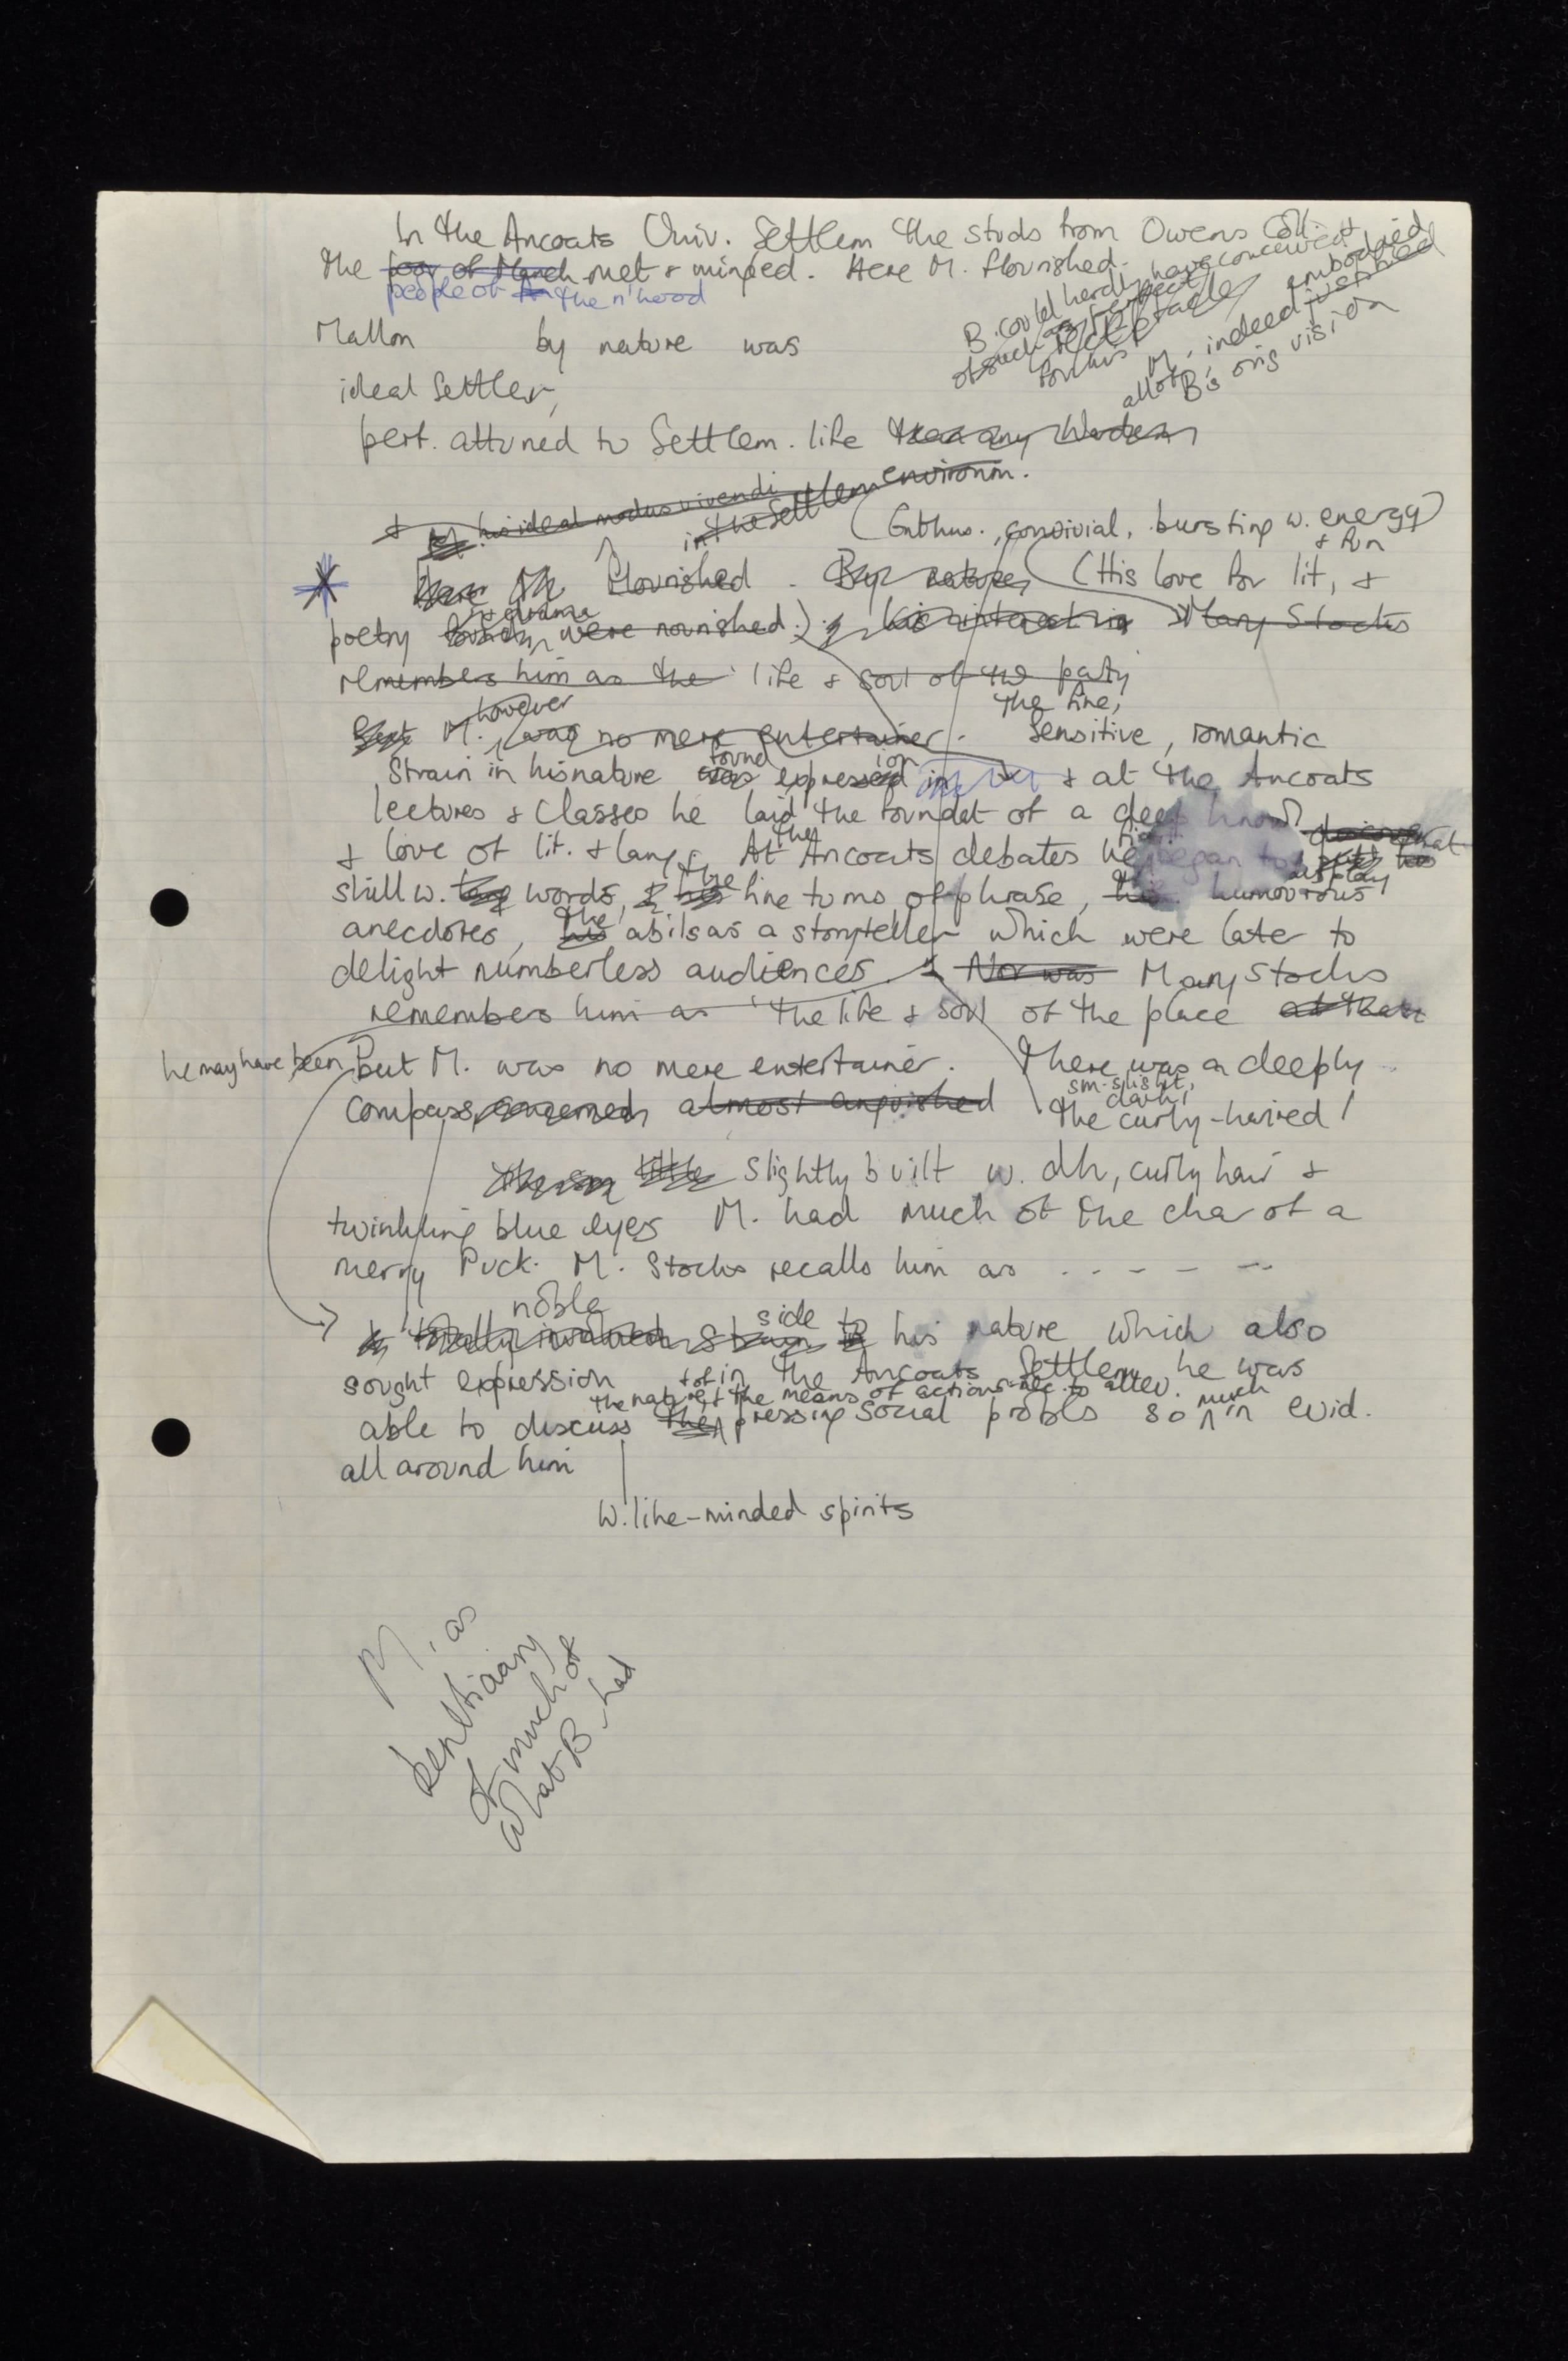 In the Ancoats Univ. Settlem the studs from Owens Coll. &
the poor of Manch met & mingled. Here M. flourished.
people of the n'hood
B. could hardly have conceived
of such a perfect
receptacle
for his
M. indeed embodied justified
all of B's orig vision
Mallon by nature was
ideal settler,
perf. attuned to Settlem. life than any Warden
& his ideal modus vivendi in the Settlem environm.
(Enthus., convivial, bursting w. energy)
& fun
Here M. flourished. By nature, (His love for lit, &
& drama
poetry were nourished.) his interest in Mary Stocks
remembers him as the life & soul of the party
the fine,
But M. however was no mere entertainer. Sensitive, romantic
strain in his nature was found expression in & at the Ancoats
lectures & classes he laid the foundat of a deep knowl
& love of lit. & lang. At the Ancoats debates he began to display that
skill w. words, & his the fine turns of phrase, his humourous
anecdotes, his the abils as a storyteller which were later to
delight numberless audiences. & Nor was Mary Stocks
remembers him as 'the life & soul of the place at that
he may have been but M. was no mere entertainer. There was a deeply
compass, concerned, almost anguished
sm. slight,
dark,
the curly-haired
little slightly built w. dk, curly hair &
twinkling blue eyes M. had much of the char of a
merry Puck. M. Stocks recalls him as - - - - -
noble side to his nature which also
sought expression & of in the Ancoats Settlem he was
the nature & the means of action nec. to allev.
able to discuss the pressing social probls so much in evid.
all around him
w. like-minded spirits
M, as
benificiary
of much of
what B. had